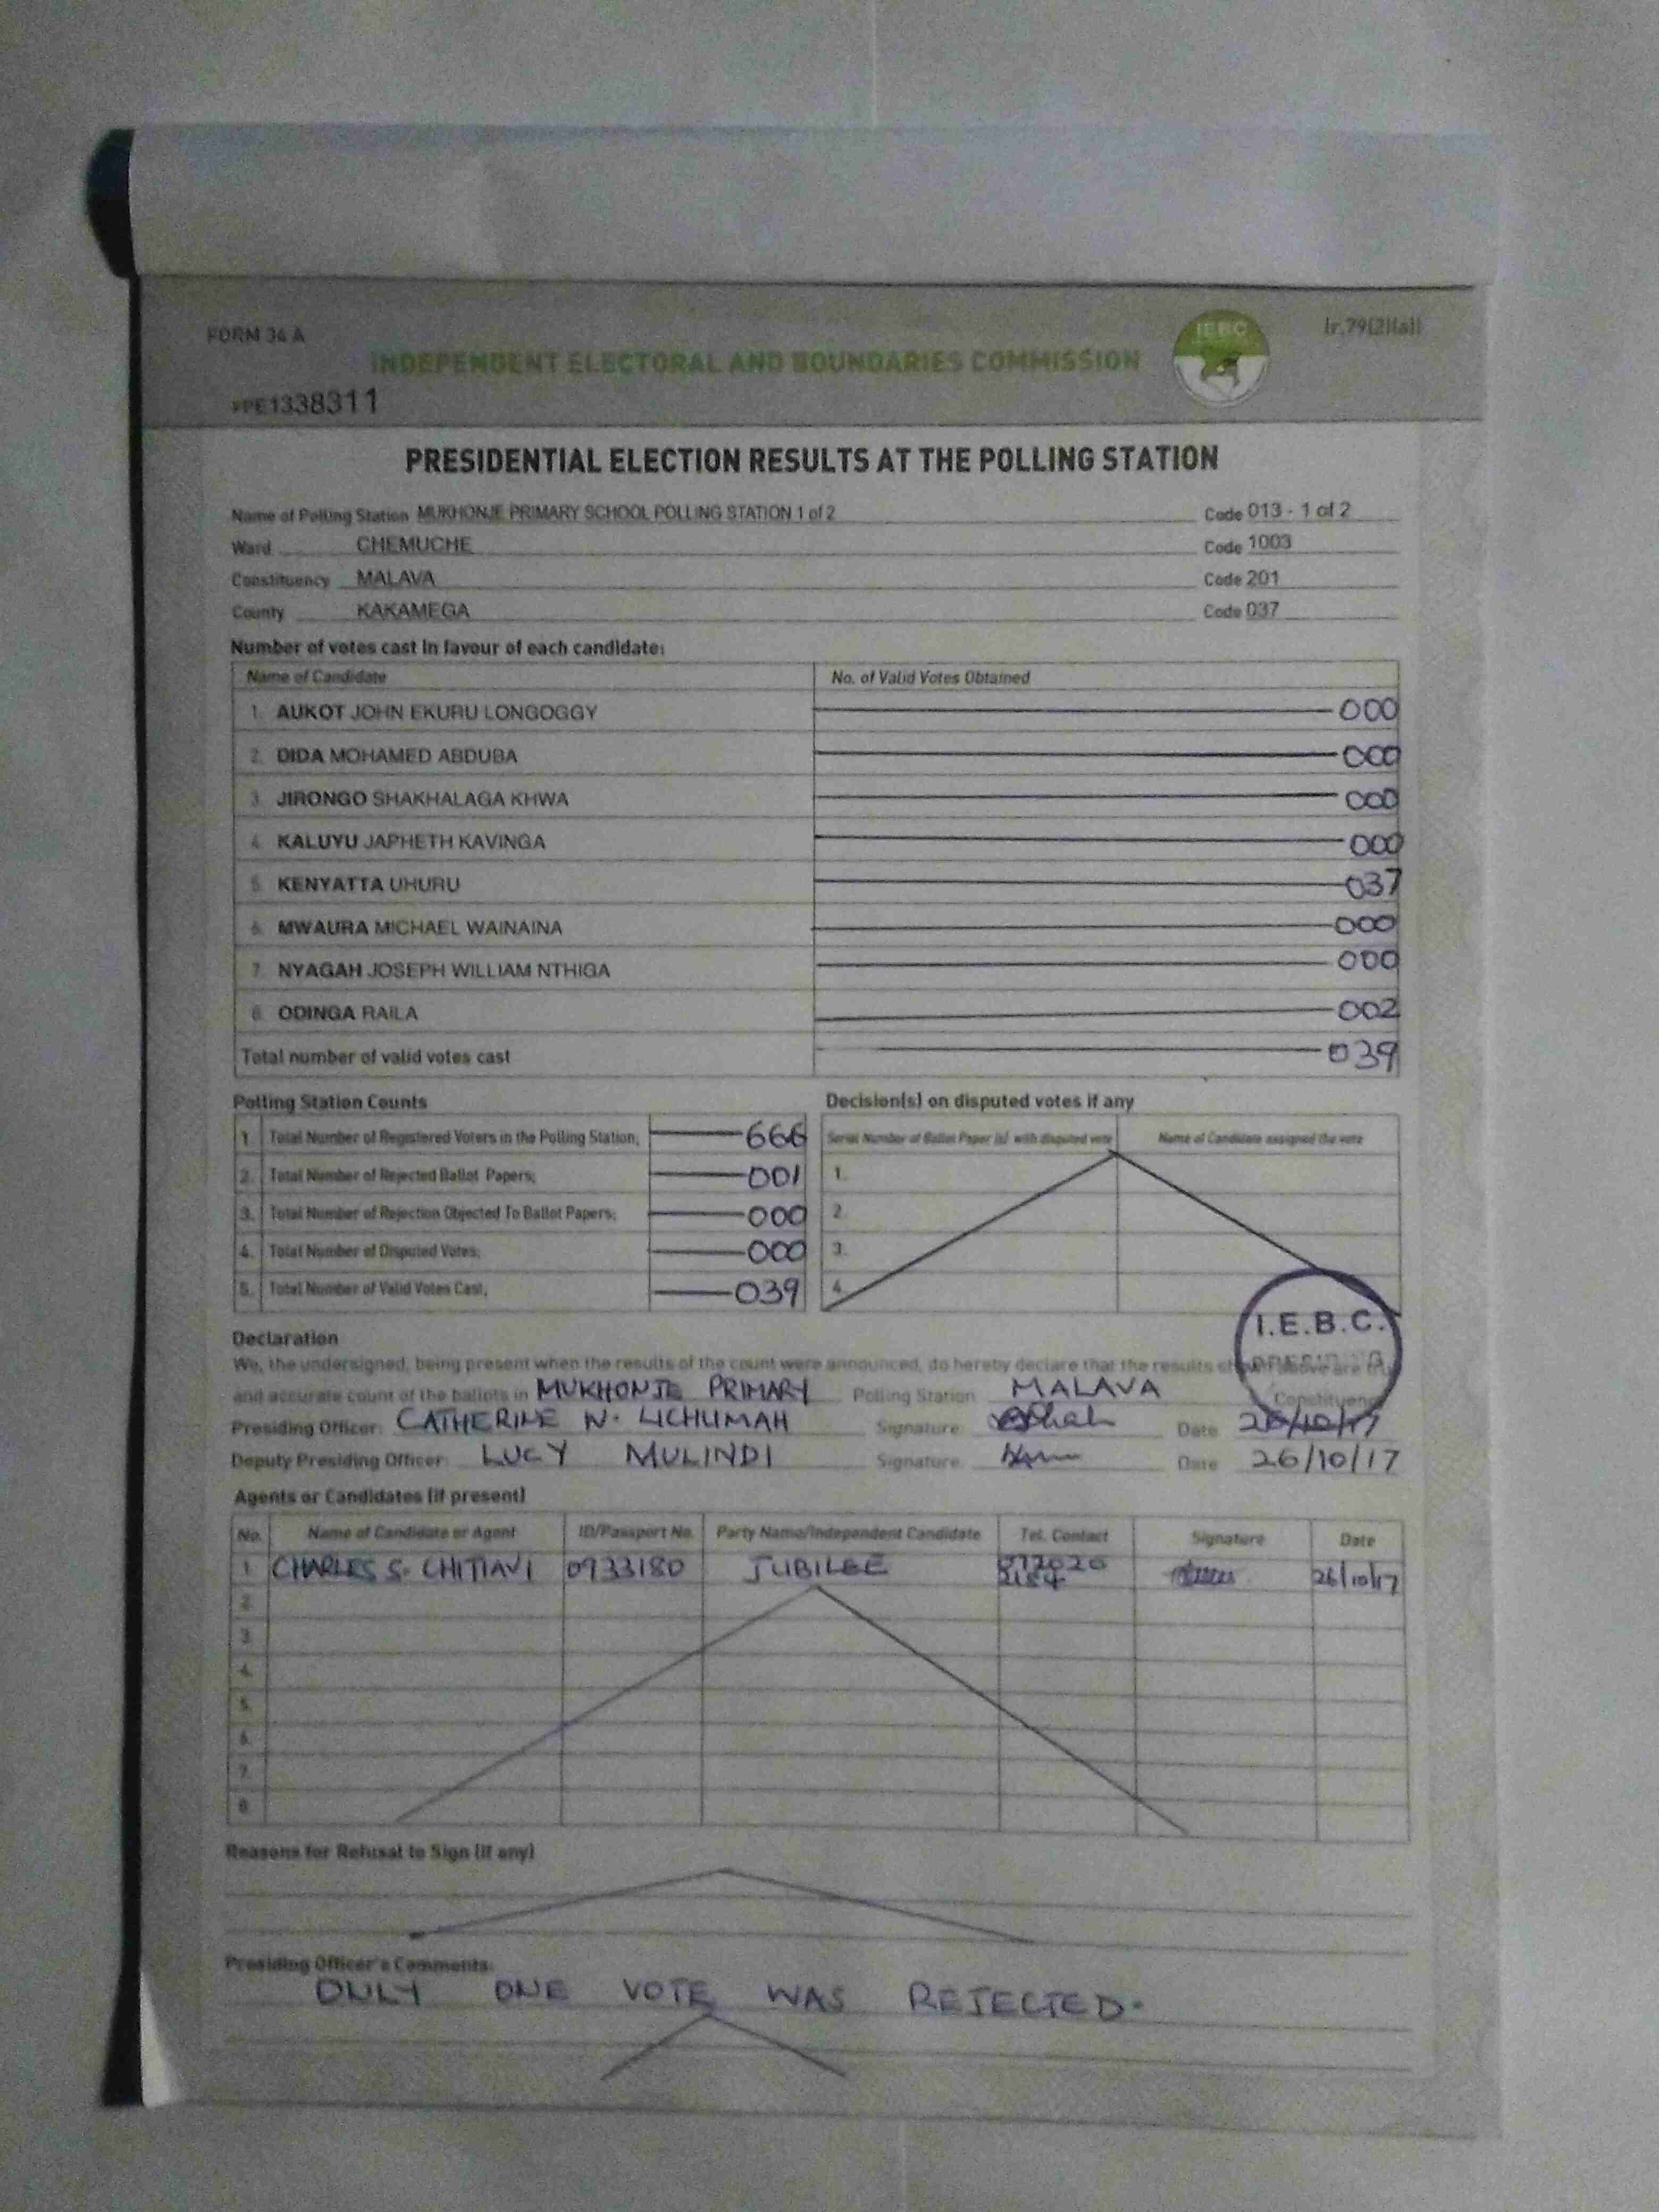 FORM 34 A
IEBC
(r.79(2)(a))
INDEPENDENT ELECTORAL AND BOUNDARIES COMMISSION
PE1338311
PRESIDENTIAL ELECTION RESULTS AT THE POLLING STATION
Name of Polling Station MUKHONJE PRIMARY SCHOOL POLLING STATION 1 of 2 Code 013 - 1 of 2
Ward CHEMUCHE Code 1003
Constituency MALAVA Code 201
County KAKAMEGA Code 037
Number of votes cast in favour of each candidate:
Name of Candidate No. of Valid Votes Obtained
1. AUKOT JOHN EKURU LONGOGGY 000
2. DIDA MOHAMED ABDUBA 000
3. JIRONGO SHAKHALAGA KHWA 000
4. KALUYU JAPHETH KAVINGA 000
5. KENYATTA UHURU 037
6. MWAURA MICHAEL WAINAINA 000
7. NYAGAH JOSEPH WILLIAM NTHIGA 000
8. ODINGA RAILA 002
Total number of valid votes cast 039
Polling Station Counts
1. Total Number of Registered Voters in the Polling Station; 666
2. Total Number of Rejected Ballot Papers; 001
3. Total Number of Rejection Objected To Ballot Papers; 000
4. Total Number of Disputed Votes; 000
5. Total Number of Valid Votes Cast; 039
Decision(s) on disputed votes if any
Serial Number of Ballot Paper (s) with disputed vote Name of Candidate assigned the vote
1.
2.
3.
4.
I.E.B.C.
Declaration
We, the undersigned, being present when the results of the count were announced, do hereby declare that the results shown above are true
and accurate count of the ballots in MUKHONJE PRIMARY Polling Station MALAVA Constituency
Presiding Officer: CATHERINE N. LICHUMAH Signature Date 26/10/17
Deputy Presiding Officer: LUCY MULINDI Signature Date 26/10/17
Agents or Candidates (if present)
No. Name of Candidate or Agent ID/Passport No. Party Name/Independent Candidate Tel. Contact Signature Date
1 CHARLES S. CHITIAVI 0933180 JUBILEE 26/10/17
2.
3.
4.
5.
6.
7.
8.
Reasons for Refusal to Sign (if any)
Presiding Officer's Comments:
ONLY ONE VOTE WAS REJECTED.